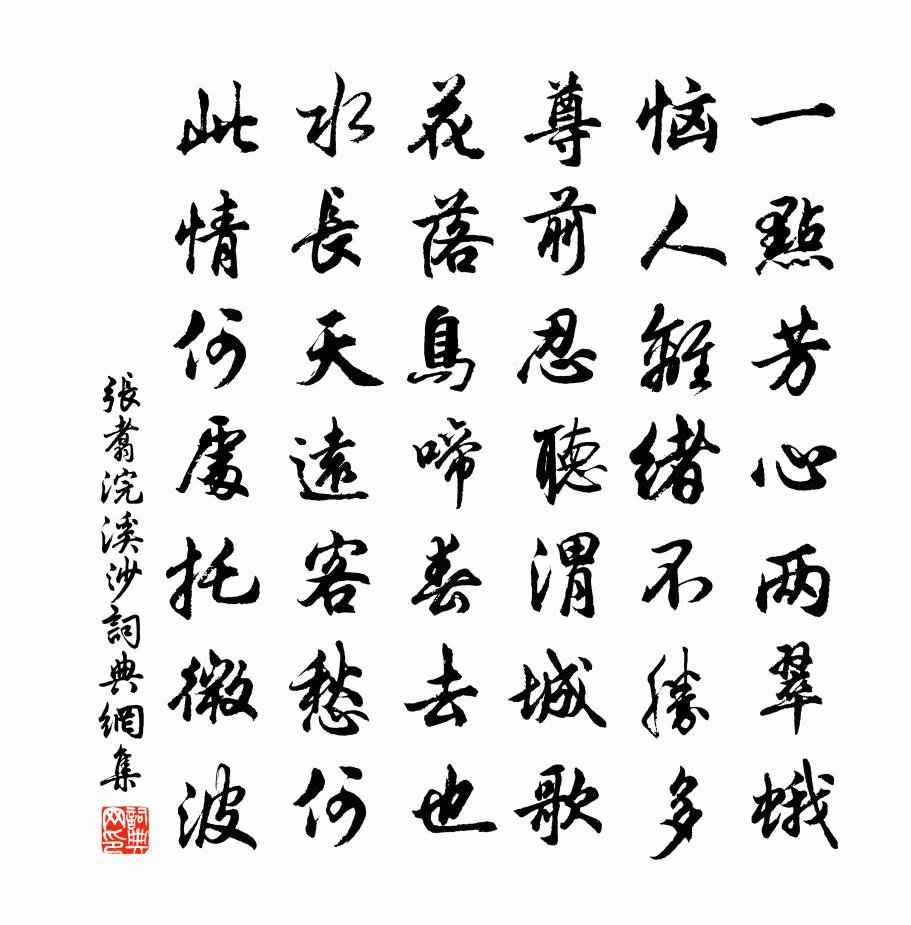 一點芳心两翠蛾
恼人離緒不勝多
尊前忍聽渭城歌
花落鳥啼春去也
水長天遠客愁何
此情何處托微波
張翥浣溪沙詞典網集
詞典网印